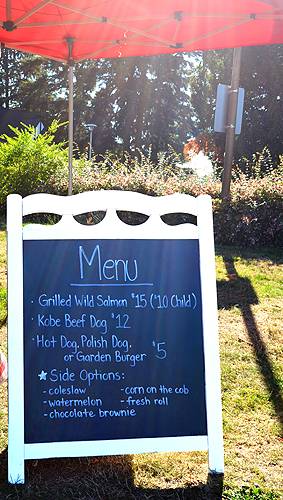 Menu
· Grilled Wild Salmon $15 ($10 Child)
· Kobe Beef Dog $12
· Hot Dog, Polish Dog,
or Garden Burger $5
★ Side Options:
- coleslaw - corn on the cob
- watermelon - fresh roll
- chocolate brownie